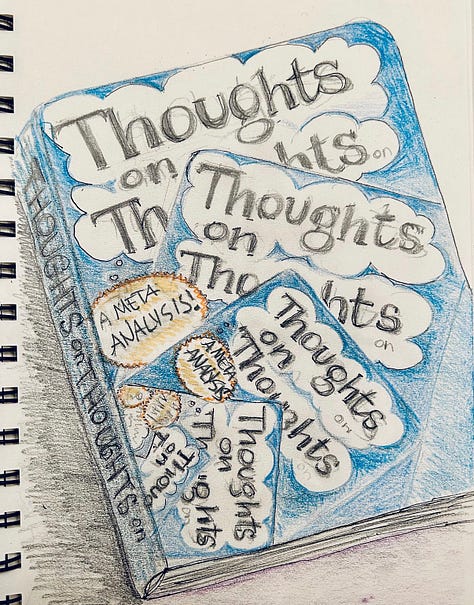 THOUGHTS on THOUGHTS on
Thoughts
on
Th hts on
A META
ANALYSIS!
Thoughts
on
Tho hts
on
A META
ANALYSIS
Thoughts
on
Thoughts
on
Thoughts
on
Th ughts
Thou
on